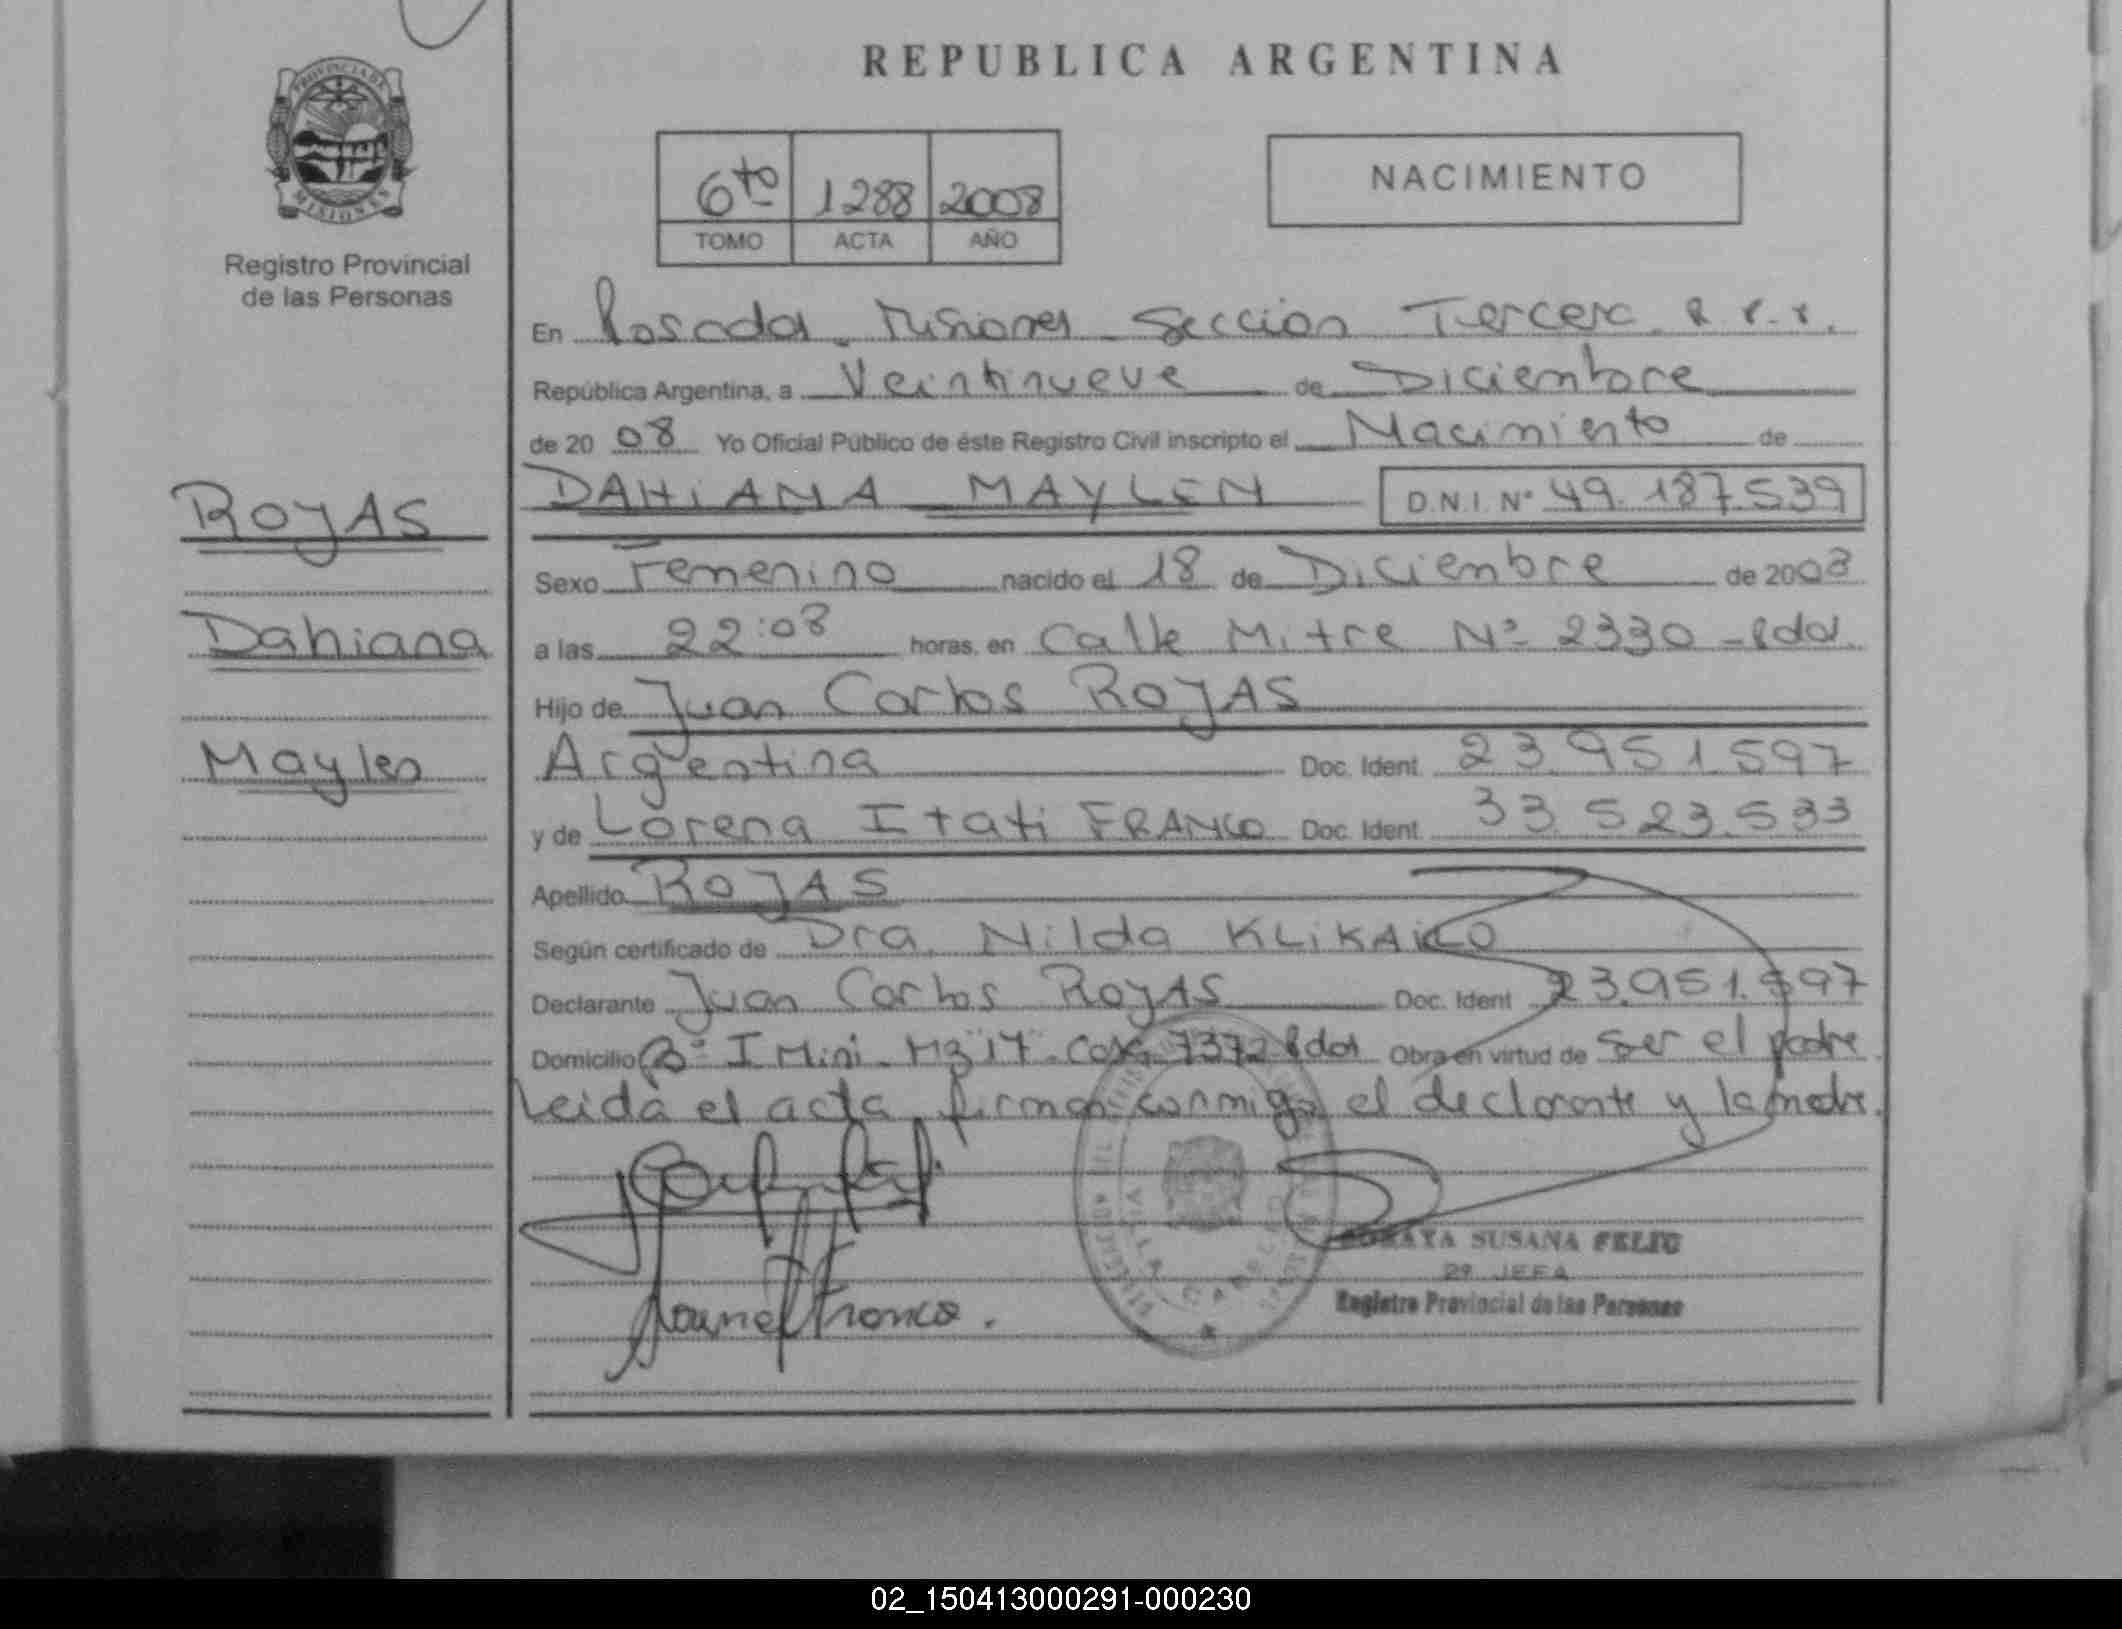 REPUBLICA ARGENTINA
PROVINCIA DE
MISIONES
Registro Provincial
de las Personas
6to 1288 2008
TOMO ACTA AÑO
NACIMIENTO
En Posadas - Misiones - Sección Tercera
República Argentina, a Veintinueve de Diciembre
de 2008 Yo Oficial Público de éste Registro Civil inscripto el Nacimiento de
DAHIANA MAYLEN D.N.I. Nº 49.187.539
ROJAS
Dahiana
Maylen
Sexo Femenino nacido el 18 de Diciembre de 2008
a las 22:08 horas, en Calle Mitre Nº 2330 - Pdas.
Hijo de Juan Carlos ROJAS
Argentina Doc. Ident. 23.951.597
y de Lorena Itati FRANCO Doc. Ident. 33.523.533
Apellido ROJAS
Según certificado de Dra. Nilda
Declarante Juan Carlos ROJAS Doc. Ident 23.951.597
Domicilio Bº I Mini - Mz 17 - Casa 7372 Pdas Obra en virtud de ser el padre
Leida el acta, firman conmigo el declarante y la madre.
Franco.
VILLA CABELLO
SUSANA FELIU
2º JEFA
Registro Provincial de las Personas
02_150413000291-000230